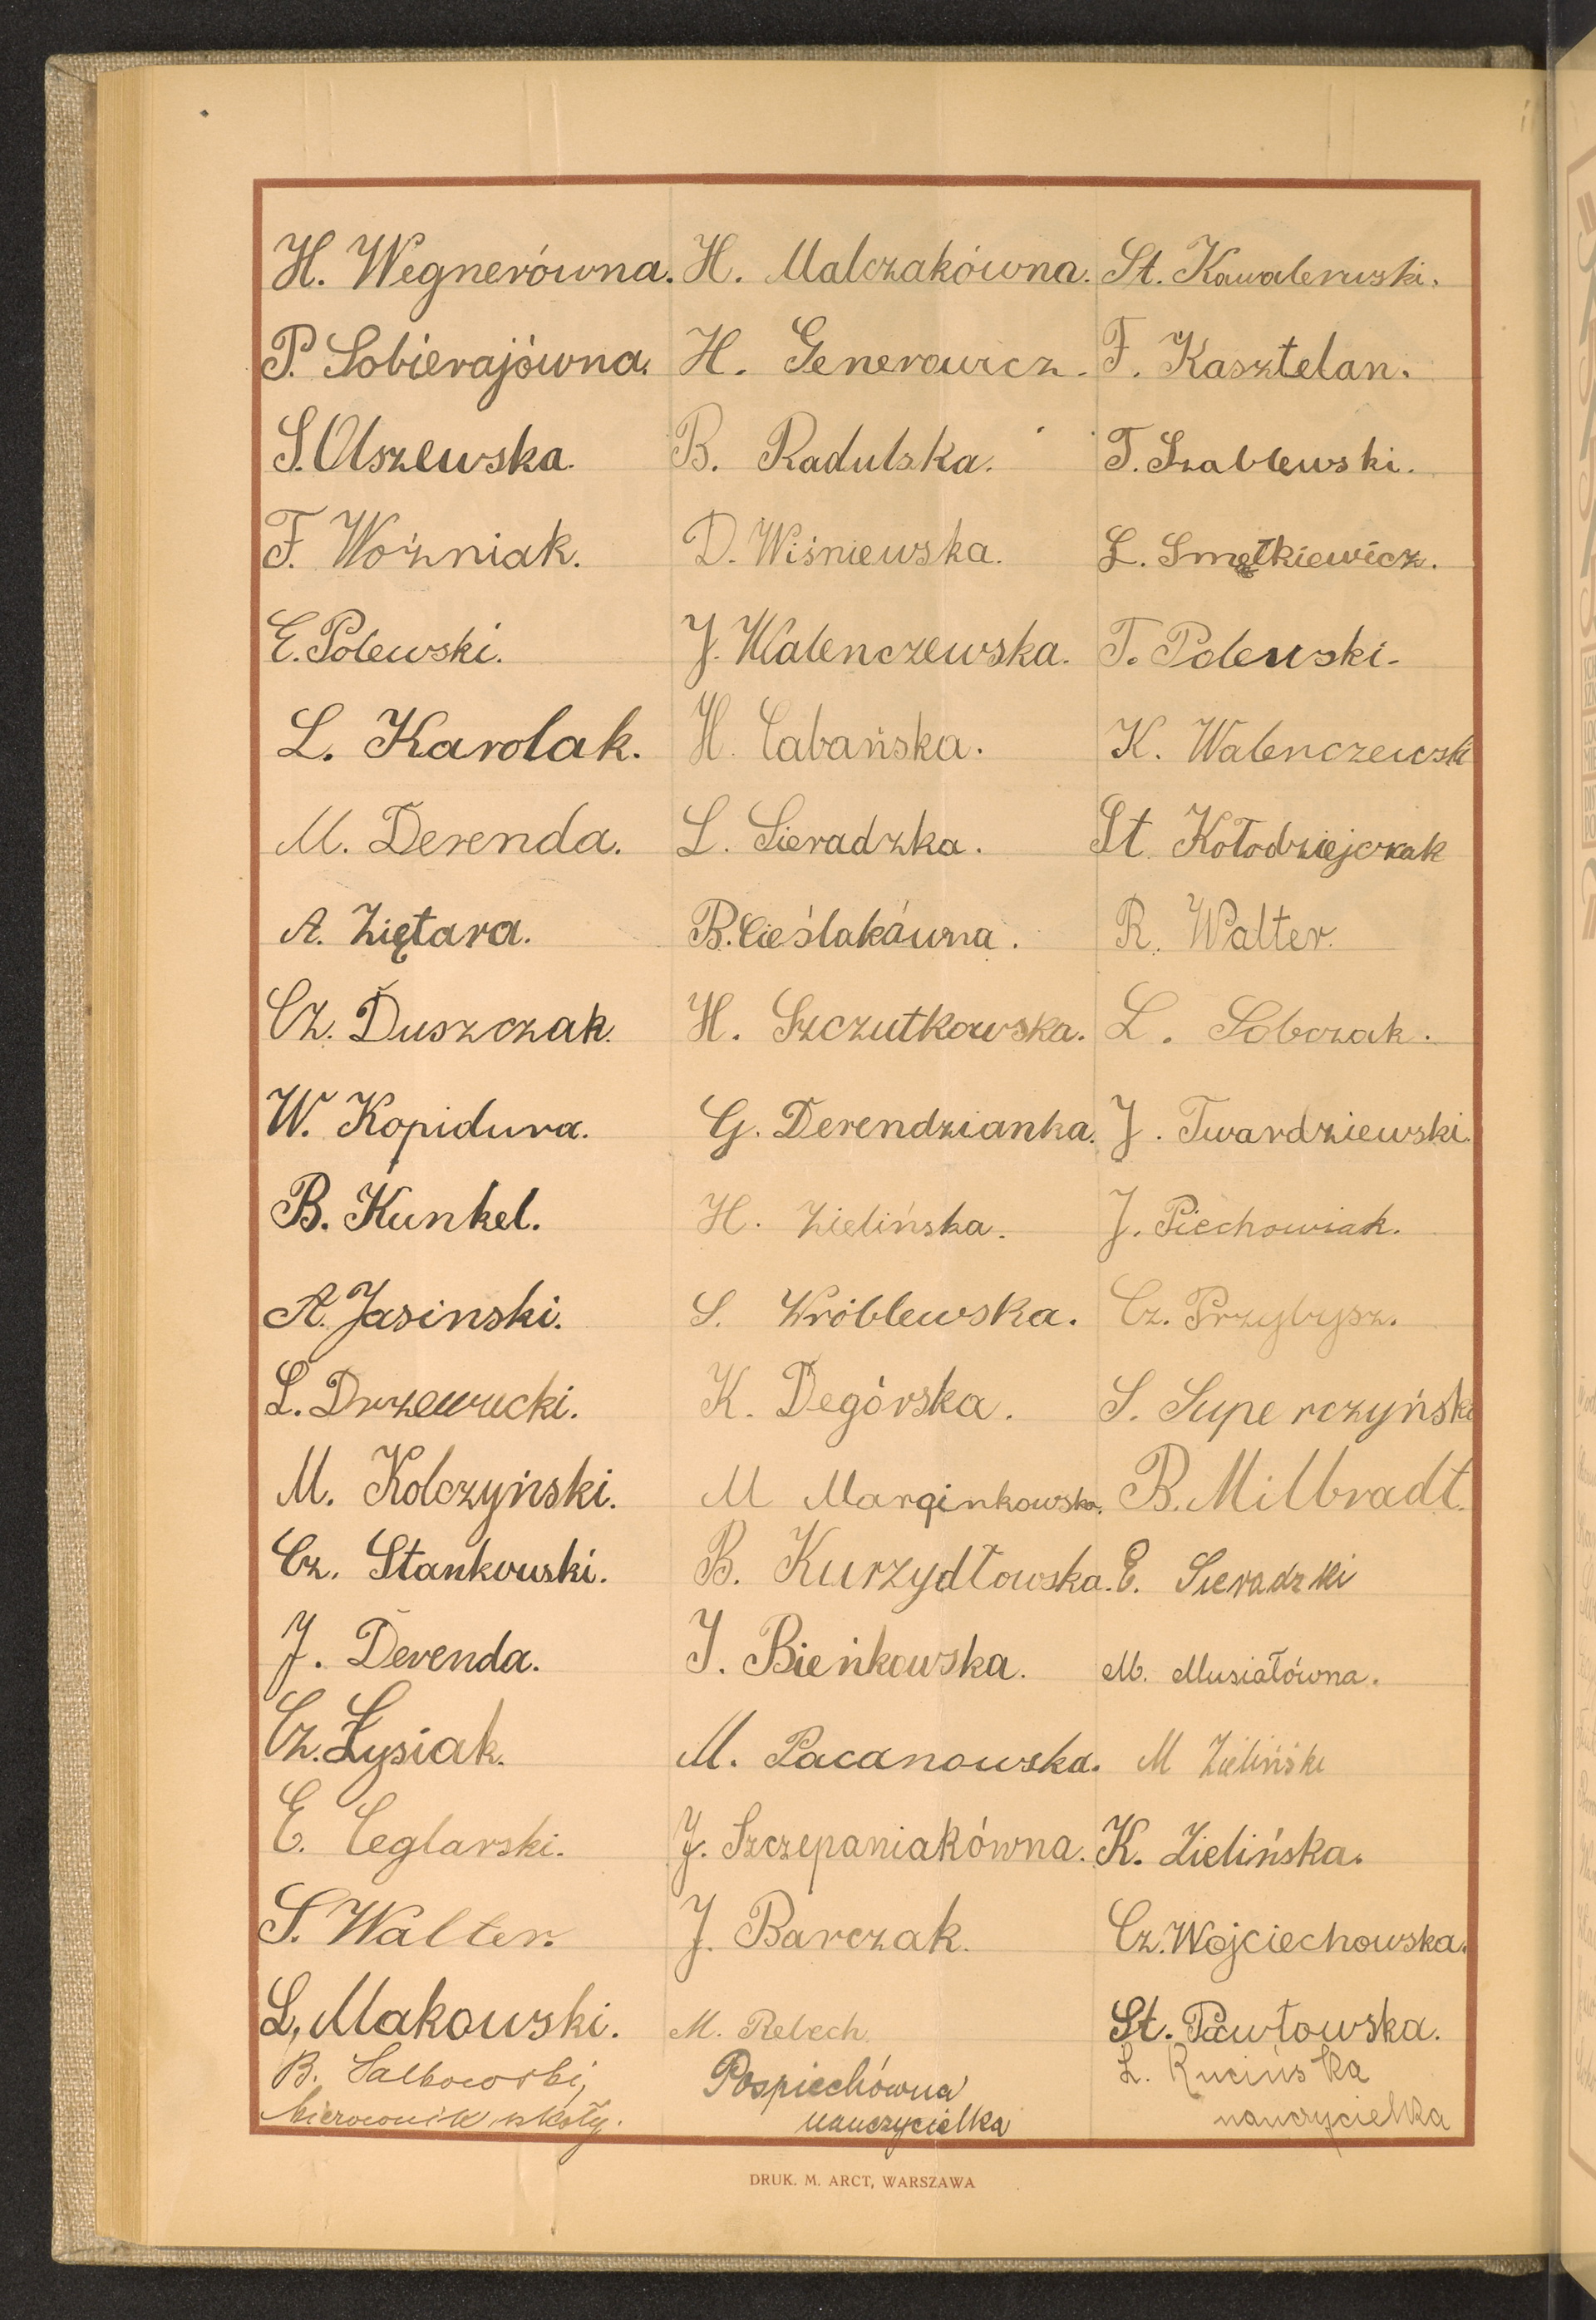 H. Wegnerówna. H. Malczakówna. St. Kawalerwski.
P. Sobierajówna. H. Generowicz. F. Kasztelan.
S. Olszewska. B. Radulska. T. Szablewski.
F. Woźniak. D. Wiśniewska. L. Smętkiewicz.
E. Polewski. J. Walenczewska. T. Polewski.
L. Karolak. H. Cabańska. K. Walenczewski
M. Derenda. L. Sieradzka. St Kołodziejczak
A. Ziętara. B. Cieślakówna. R. Walter.
Cz. Duszczak. H. Szczutkowska. L. Sobczak.
W. Kopidura. G. Derendzianka. J. Twardziewski.
B. Kunkel. H. Zielińska. J. Piechowiak.
A. Jasinski. S. Wróblewska. Cz. Przybysz.
L. Drzewucki. K. Degórska. S. Superczyński
M. Kolczyński. M Marginkowska. B. Milbradt.
Cz. Stankowski. B. Kurzydłowska. E. Sieradzki
J. Derenda. I. Bieńkowska. M. Musiałówna.
Cz. Łysiak. M. Pacanowska. M Zieliński
E. Ceglarski. J. Szczepaniakówna. K. Zielińska.
S. Walter. J. Barczak. Cz. Wojciechowska.
L. Makowski. M. Rebech. St. Pawłowska.
B. Salbowski, Pospiechówna L. Rucińska
kierownik szkoły. nauczycielka nauczycielka
DRUK. M. ARCT, WARSZAWA